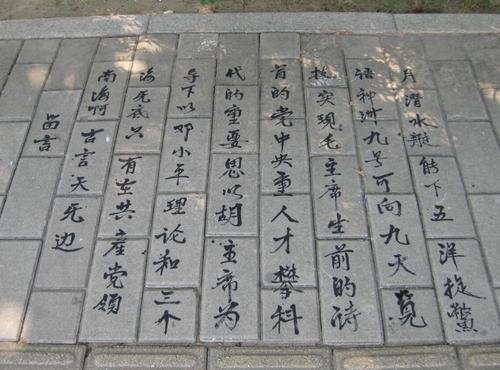 月潜水艇能下五洋捉鳖
语神州九号可向九天览
实现毛主席生前的诗
首的党中央重人才攀科
代的重要思以胡主席为
导下以邓小平理论和三个
海无底只有在共産党领
南海啊古言天无边
留言